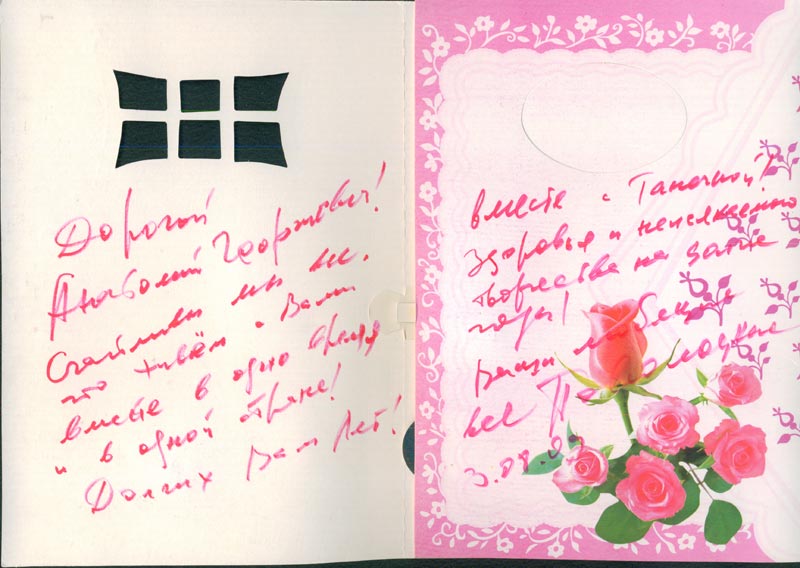 Дорогой
Анатолий Георгиевич!
Счастливы мы все,
что живём с Вами
вместе в одно время
и в одной стране!
Долгих Вам Лет!
вместе с Танечкой!
Здоровья и неиссякаемого
творчества на долгие
годы!
Ваши любящие
все
3.09.